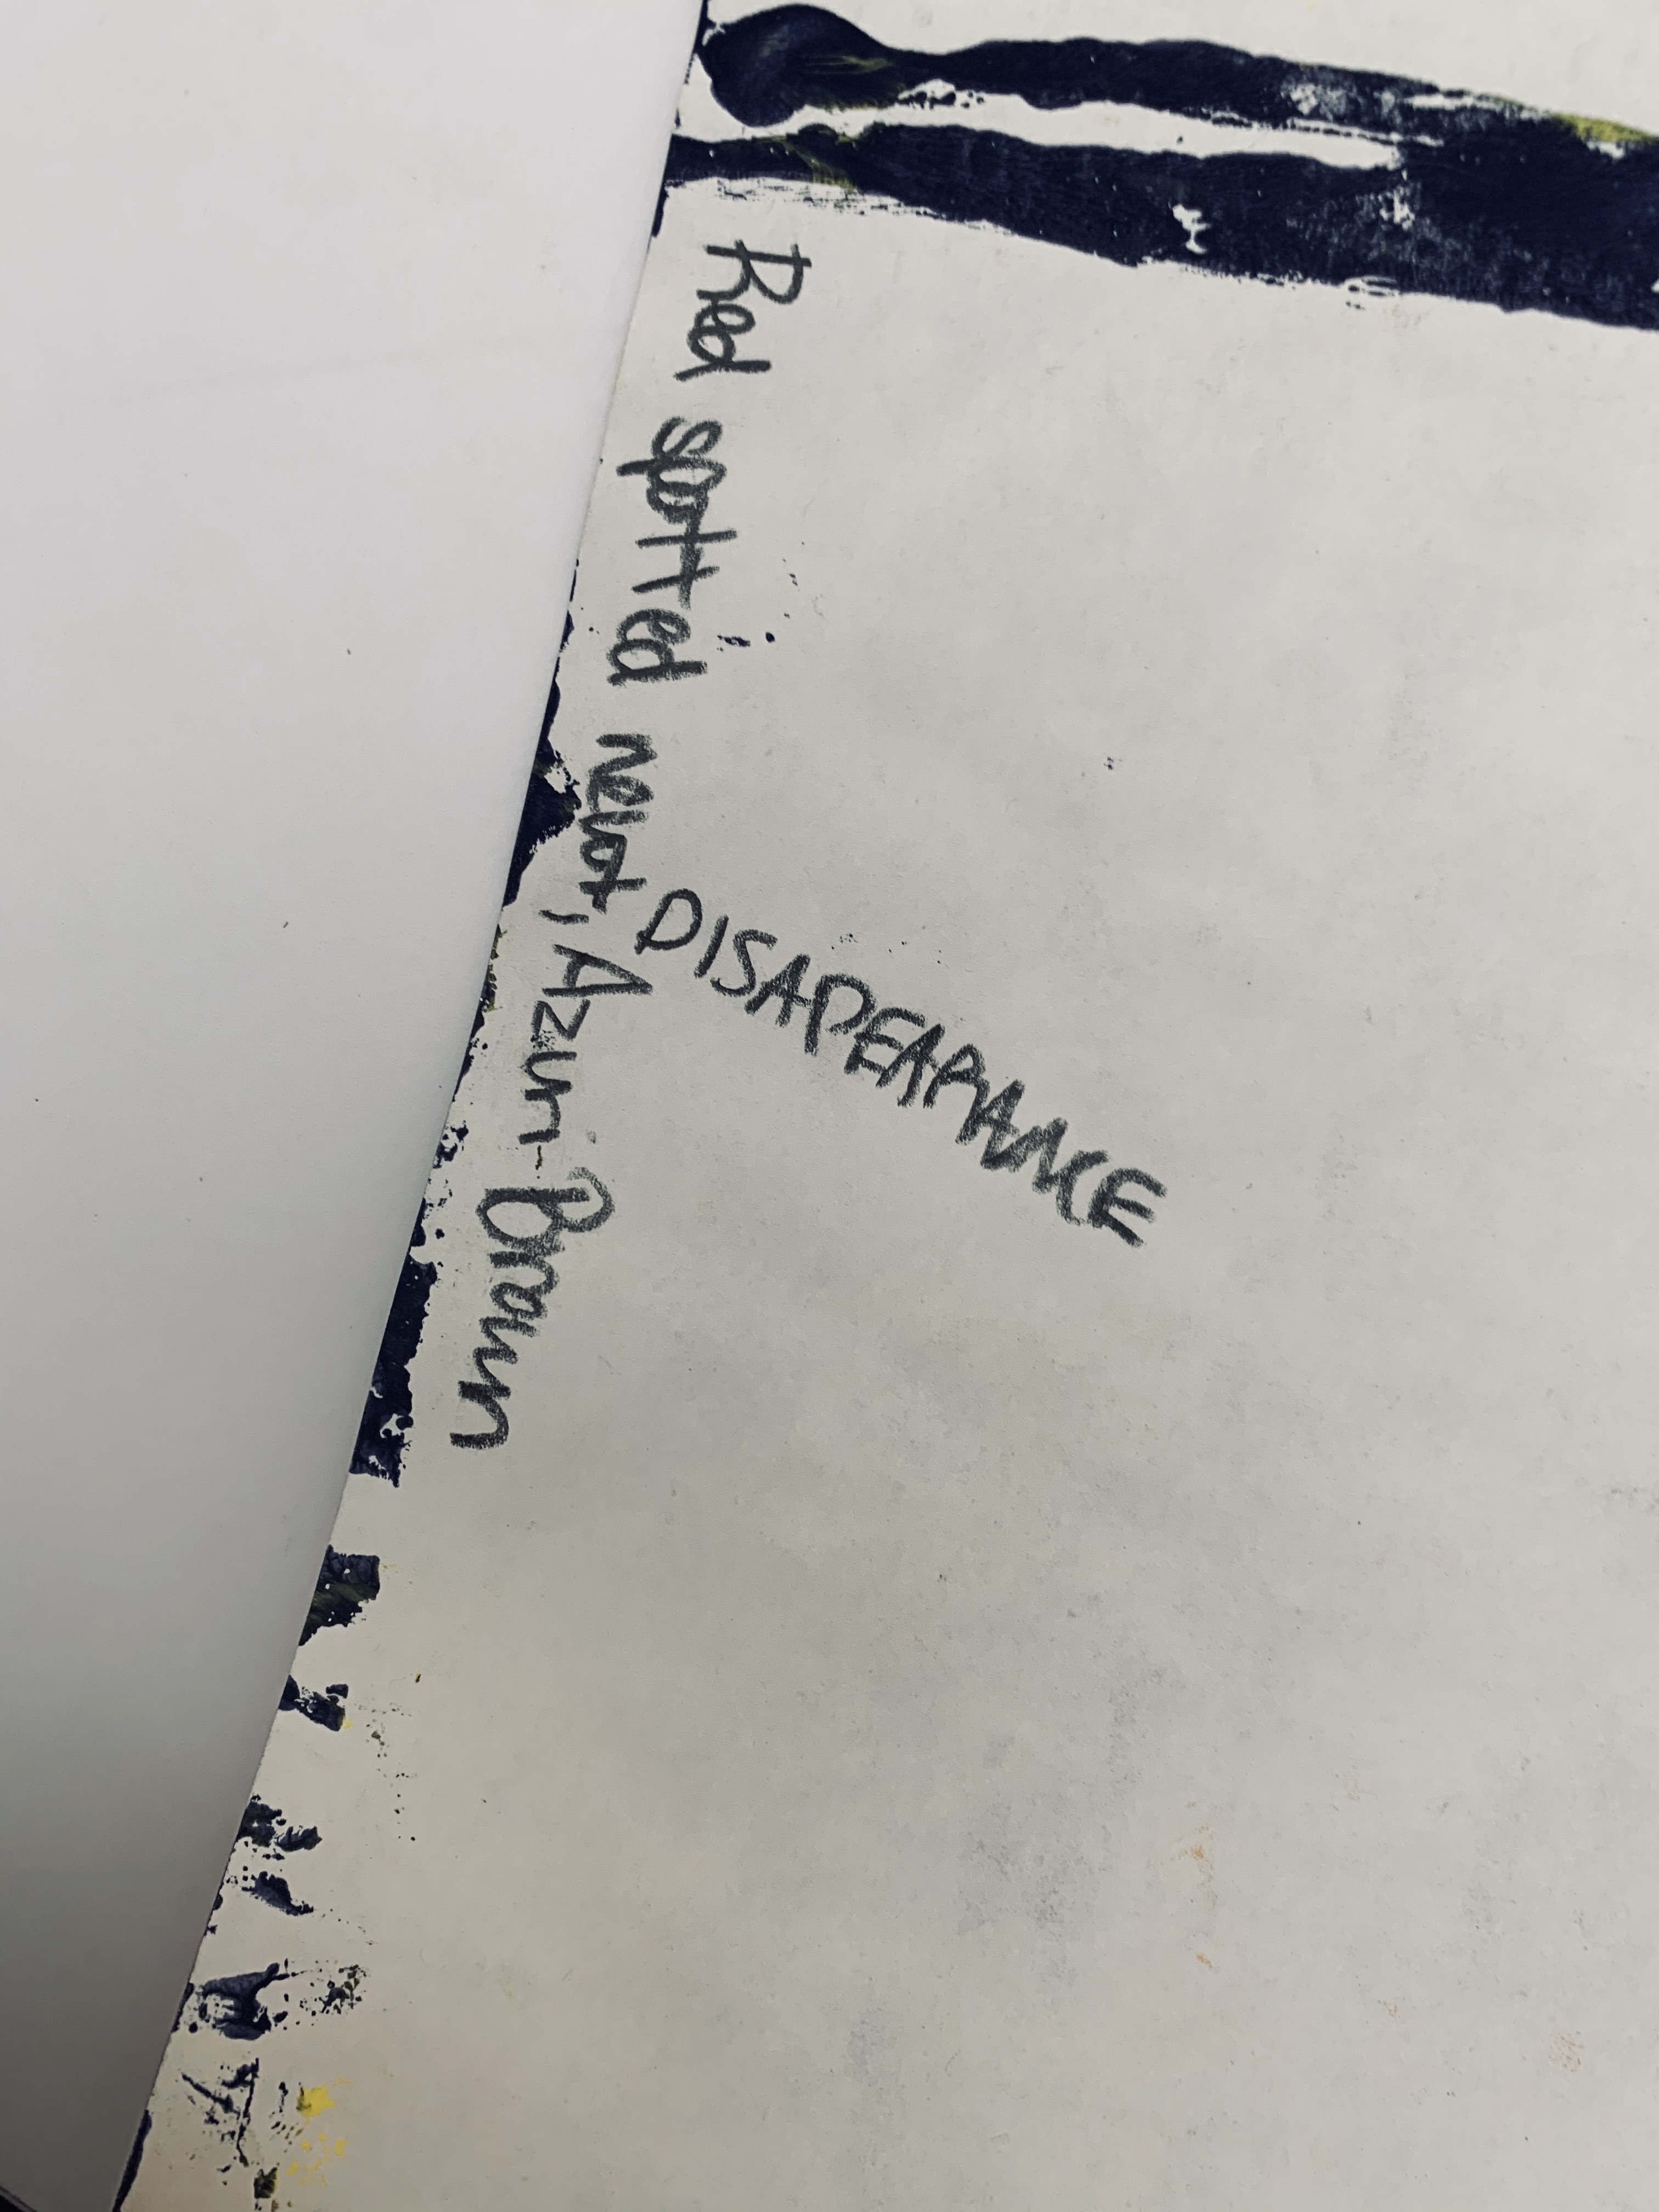 Red spotted newt, Azuri Brown
DISAPEARANCE